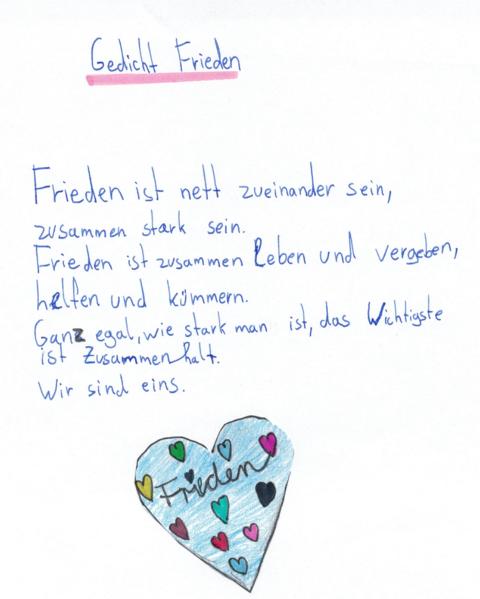 Gedicht Frieden
Frieden ist nett zueinander sein,
zusammen stark sein.
Frieden ist zusammen leben und vergeben,
helfen und kümmern.
Ganz egal, wie stark man ist, das Wichtigste
ist Zusammenhalt.
Wir sind eins.
Frieden